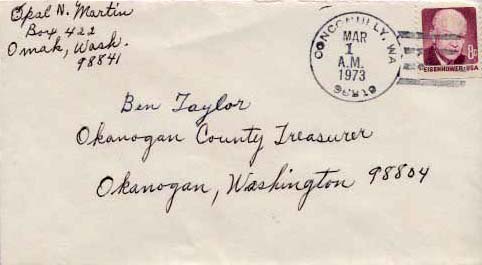 Opal N. Martin
Box 422
Omak, Wash.
98841
CONCONULLY, WA
MAR
1
A.M.
1973
8¢
EISENHOWER·USA
Ben Taylor
Okanogan County Treasurer
Okanogan, Washington 98804